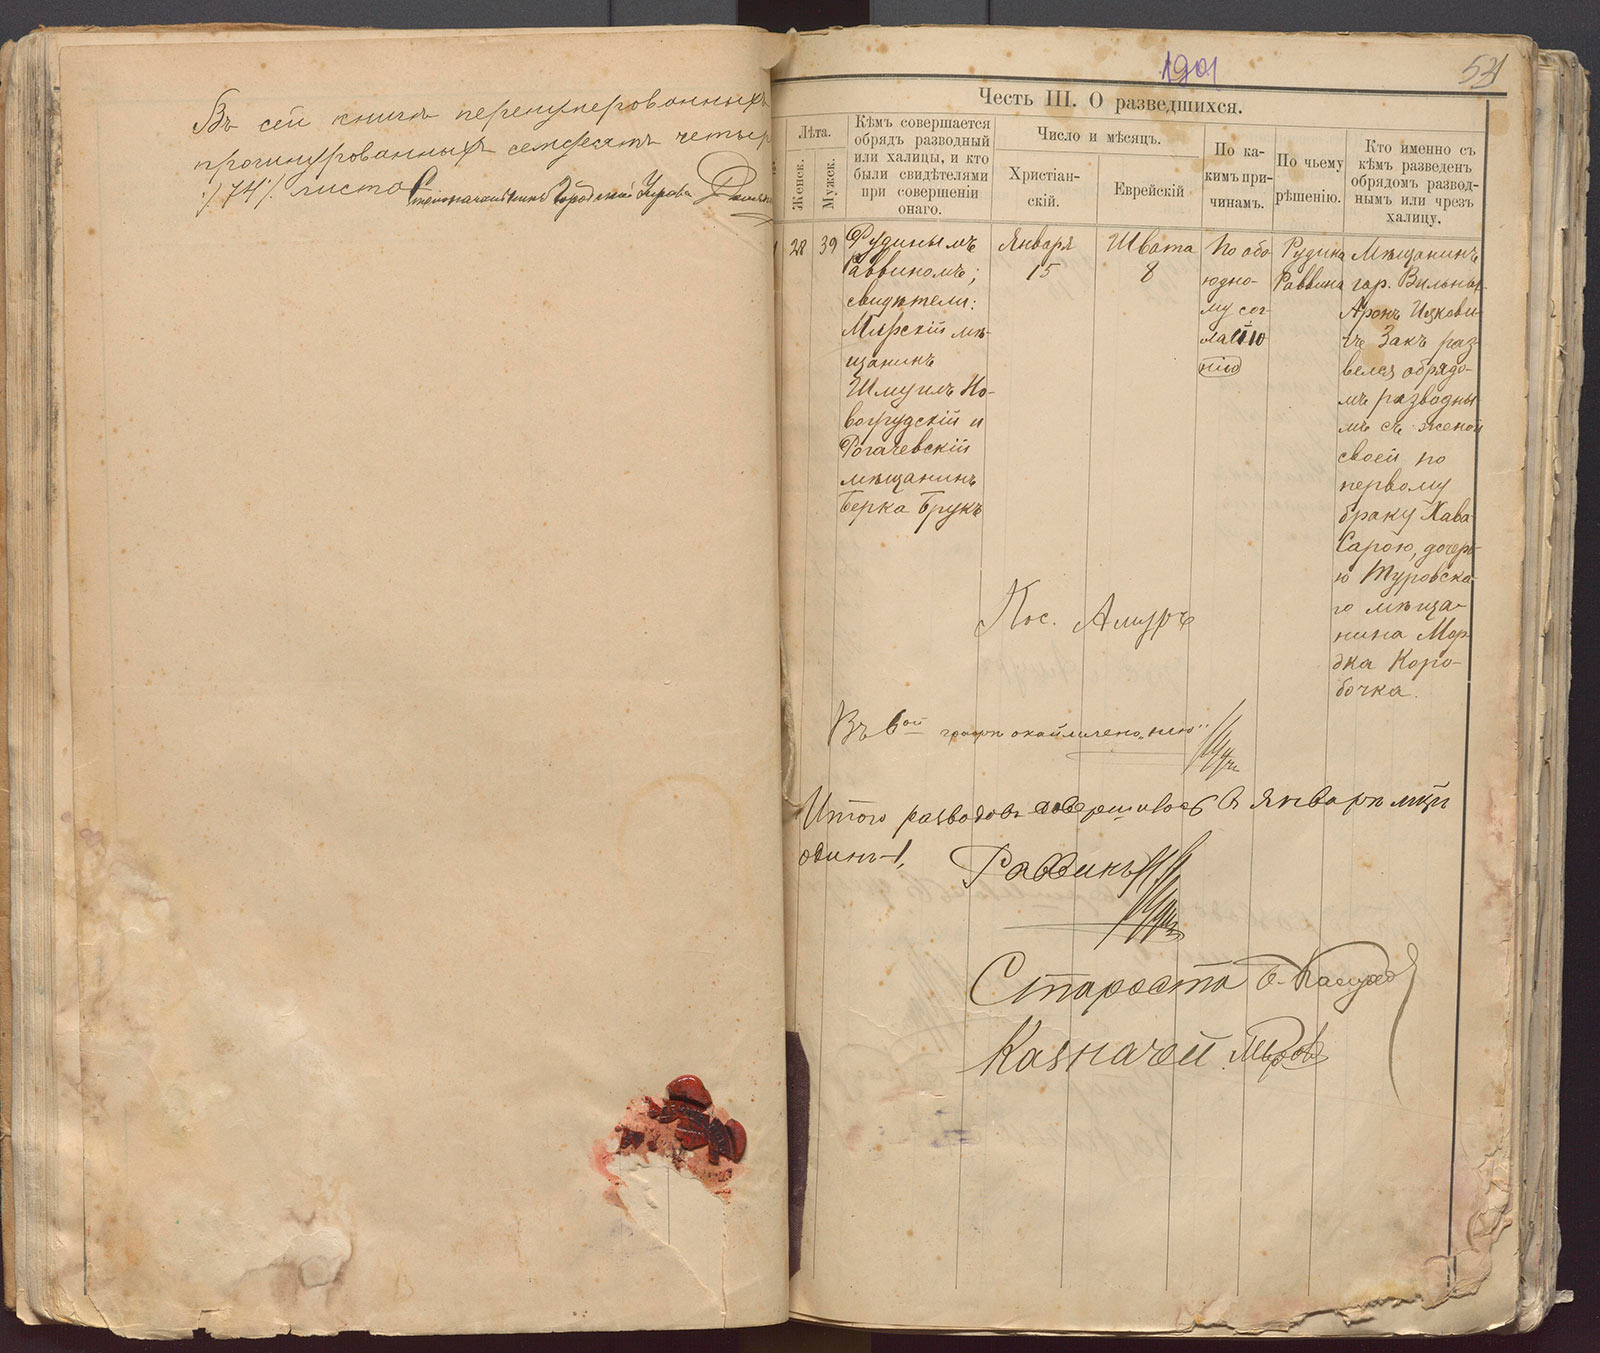 Въ сей книгѣ перенумерованныхъ
прошнурованныхъ семдесятъ четыре
:/74/: листа
Городской Управы
1901
54
Честь III. О разведшихся.
Лѣта.
Женск.
Мужск.
Кѣмъ совершается
обрядъ разводный
или халицы, и кто
были свидѣтелями
при совершеніи
онаго.
Число и мѣсяцъ.
Христіан-
скій.
Еврейскій
По ка-
кимъ при-
чинамъ.
По чьему
рѣшенію.
Кто именно съ
кѣмъ разведенъ
обрядомъ развод-
нымъ или чрезъ
халицу.
1
28
39
Рудинымъ
Раввиномъ;
свидѣтели:
Мирскій мѣ-
щанинъ
Шмуилъ Но-
вогрудскій и
Рогачевскій
мѣщанинъ
Берка Брукъ
Января
15
Швата
8
По обо-
юдно-
му сог-
ласію
нію
Рудина
Раввина
Мѣщанинъ
гор. Вильны
Аронъ Ицкови-
чъ Закъ раз-
велся обрядо-
мъ разводны-
мъ съ женой
своей по
первому
браку Хава-
Сарою, дочерь-
ю Туровска-
го мѣща-
нина Мор-
дка Коро-
бочка.
Пос. Амуръ
Въ 6ой графѣ окаймлено „нію"
Итого разводовъ совершилось въ январѣ мцѣ
одинъ-1,
Раввинъ
Староста
Казначей